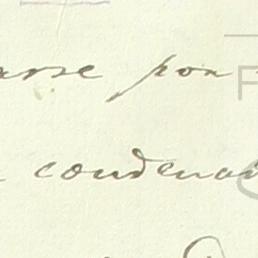 arse por
condenad